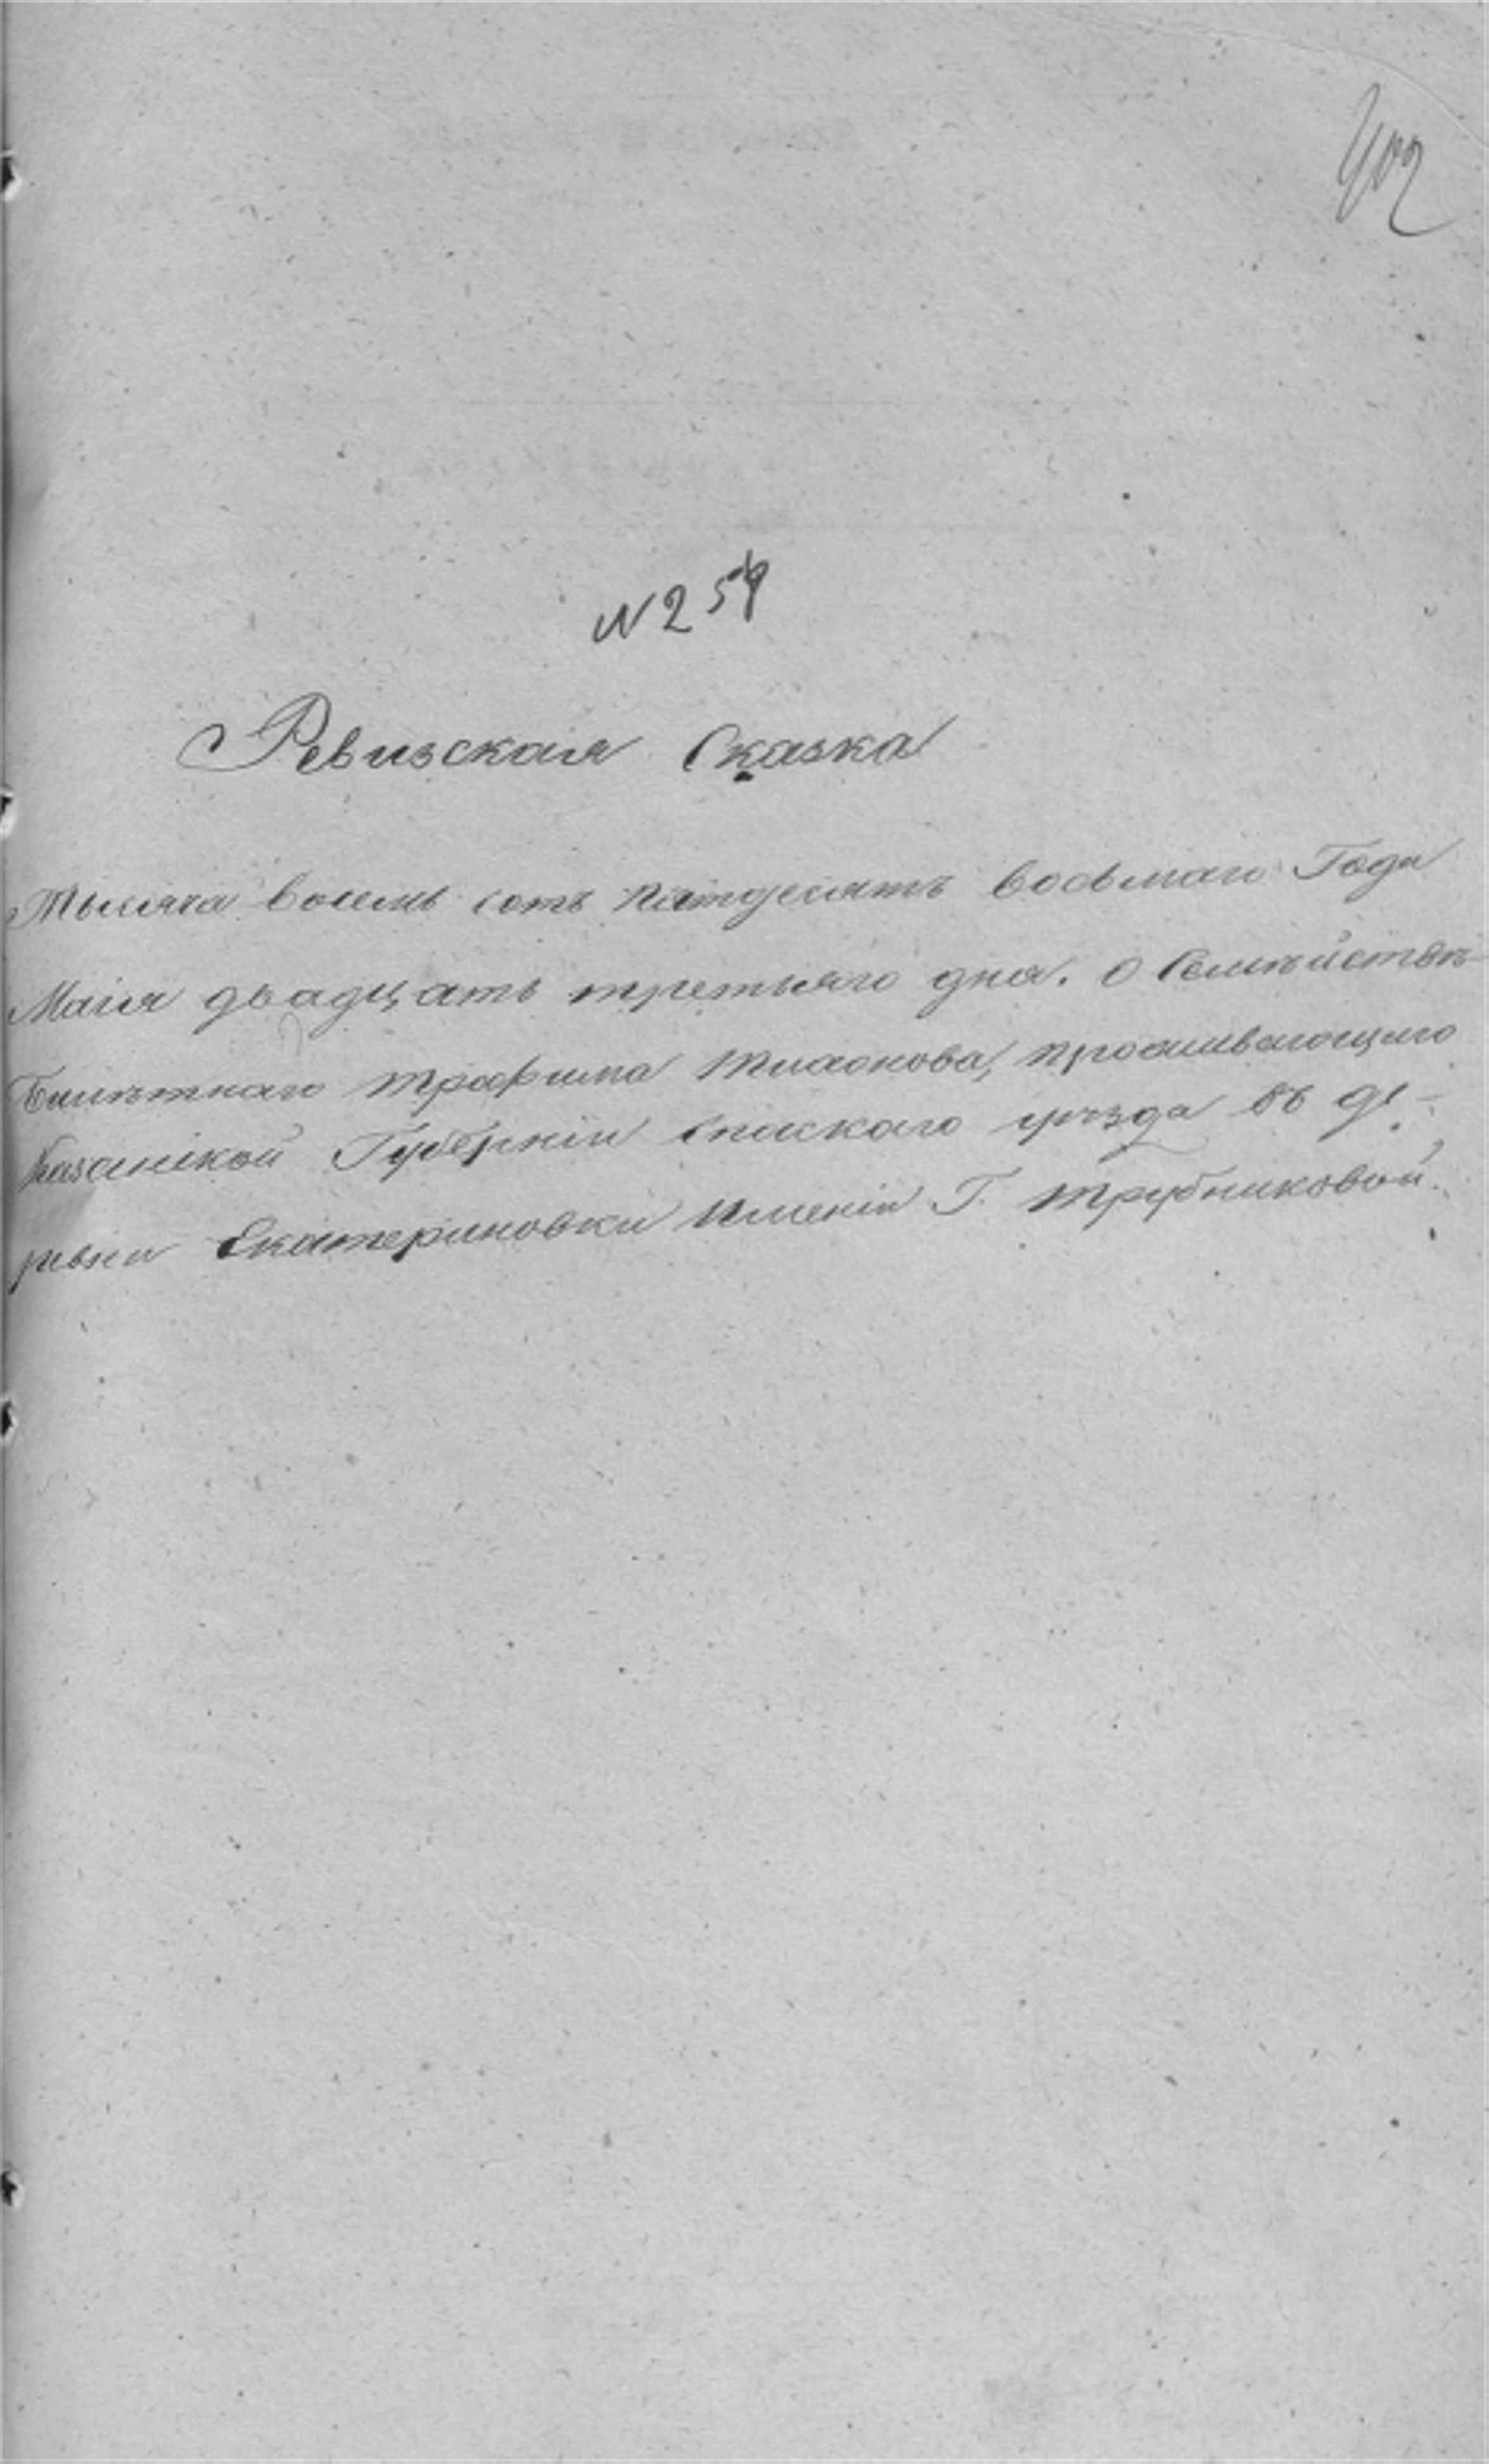 402
N 254
Ревизская Сказка
Тысяча восемь сотъ пятдесятъ восьмаго Года
Маія двадцать третьяго дня. О Семѣйствѣ
Билѣтнаго Трафима проживающаго
Казанской Губерніи Спаскаго уѣзда въ де-
ревни Екатериновки Имѣнія Г. Трубниковой.